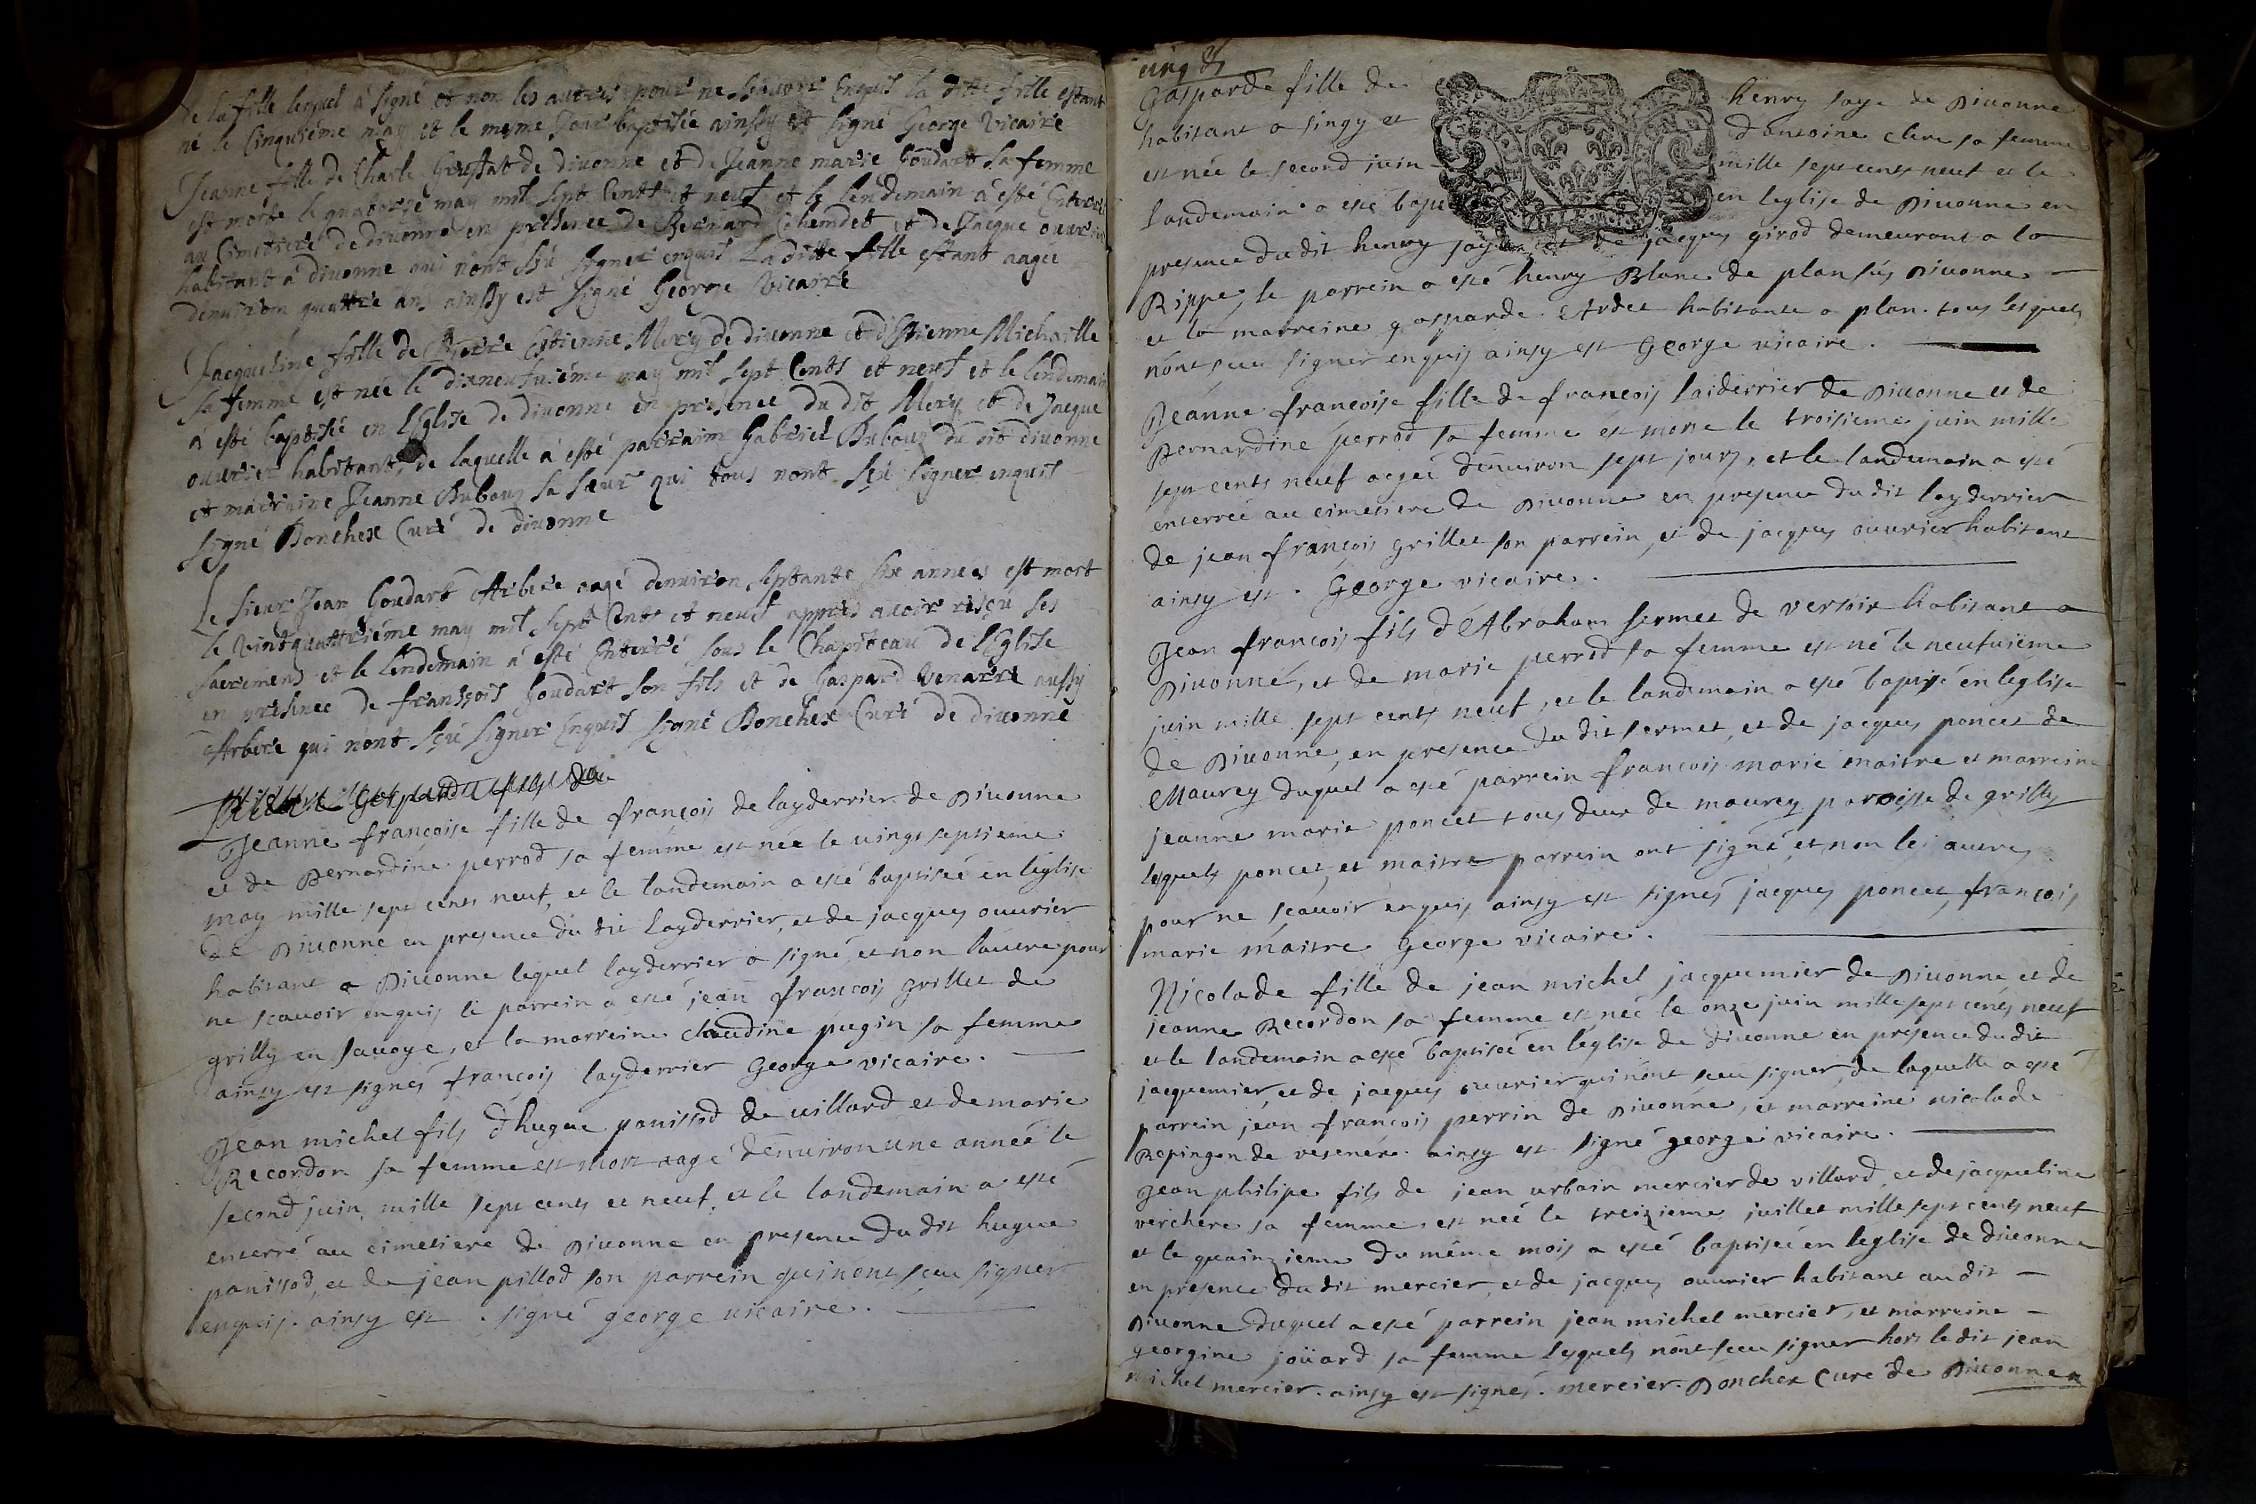 de la fille lequel à signé et non les autres pour ne scauoir Enquis la ditte fille estant
né le Cinquiéme may et le meme Jour baptisée ainsy est signé George Vicaire
Jeanne fille de Charle de diuonne et de Jeanne marie Goudart sa femme
est morte le quatorse may mil sept Cents et neuf et le lendemain à esté Enterrée
au Cimetiere de diuonne en presence de Bernard Chendet et de Jacque ouurier
habitant à diuonne qui nont sçü signer enquis La ditte fille estant aagée
denuiron quattre ans ainsy est signé George Vicaire
Jacqueline fille de Pierre Estienne Mery de diuonne et d'Estienne Michaille
sa femme est née le dixneufuiéme may mil sept Cents et neuf et le lendemain
à esté baptisée en l'Eglise de diuonne en presence du dit Mery et de Jacque
ouurier habitant, de laquelle à esté parraim Gabriel Dubouz du dit diuonne
et marraine Jeanne Dubouz sa sœur qui tous nont sçü signer enquis
signé Donchex Curé de diuonne
Le sieur Jean Goudart Arbere aagé denuiron septante six années est mort
le vintquattriéme may mil sept Cents et neuf appres auoir resçu ses
sacremens et le lendemain à esté Enterré sous le Chapiteau de l'Eglise
en presence de franssois Goudart son fils et de Gaspard Venarre aussy
Arbere qui nont sçü signer Enquis signé Donchex Curé de diuonne
Jeanne françoise fille de françois de layderrier de Diuonne
et de Bernardine perrod sa femme est née le vingt septieme
may mille sept cents neuf, et le landemain a esté baptiseé en l'eglise
de Diuonne en presence du dit layderrier, et de jacques ouurier
habitant a Diuonne lequel layderrier a signé, et non l'autre pour
ne scauoir enquis le parrein a esté jean françois grillet de
grilly en sauoye, et la marreine claudine pugin sa femme
ainsy est signés françois layderrier George vicaire.
Jean michel fils d'hugue panissod de uillard et de marie
Recordon sa femme est mort aagé d'enuiron une anneé le
second juin mille sept cents et neuf, et le landemain a esté
enterré au cimetiere de Diuonne en presence du dit hugue
panissod, et de jean pillod son parrein qui nont sceu signer
enquis. ainsy est. signé george uicaire.
Gasparde fille de henry saye de Diuonne
habitant a singy et d'antoine clere sa femme
est née le second juin mille sept cents neuf et le
landemain a esté bapt en l'eglise de Diuonne en
presence du dit henry saye et de jacques girod demeurant a la
Rippe, le parrein a esté henry Blanc de plan sus Diuonne
et la marreine gasparde Ardet habitante a plan. tous lesquels
n'ont sceu signer enquis ainsy est George uicaire.
Jeanne françoise fille de françois laiderrier de Diuonne et de
Bernardine perrod sa femme est morte le troisieme juin mille
sept cents neuf aageé d'enuiron sept jours, et le landemain a esté
enterreé au cimetiere de Diuonne en presence du dit layderrier
de jean françois grillet son parrein, et de jacques ouurier habitant
ainsy est. George vicaire.
Jean françois fils d'Abraham sermet de versoix habitant a
Diuonne, et de marie perrod sa femme est né le neufuieme
juin mille sept cents neuf, et le landemain a esté baptisé en l'eglise
de Diuonne, en presence du dit sermet, et de jacques poncet de
Maurey duquel a esté parrein françois marie maitre et marreine
jeanne marie poncet tous deux de maurey paroisse de grilly
lesquels poncet, et maitre parrein ont signé, et non les autres
pour ne scauoir enquis ainsy est signés jacques poncet, françois
marie maitre George vicaire.
Nicolade fille de jean michel jacquemier de Diuonne et de
jeanne Recordon sa femme est neé le onze juin mille sept cents neuf
et le landemain a esté baptiseé en l'eglise de diuonne en presence du dit
jacquemier, et de jacques ouurier qui n'ont sceu signer, de laquelle a esté
parrein jean françois perrin de Diuonne, et marreine nicolade
Repingon de vesenéx. ainsy est signé george vicaire.
Jean philipe fils de jean urbain mercier de villard, et de jacqueline
verchere sa femme, est neé le treizieme juillet mille sept cents neuf
et le quinzieme du même mois a esté baptiseé en l'eglise de diuonne
en presence du dit mercier, et de jacques ouurier habitant au dit
Diuonne duquel a esté parrein jean michel mercier, et marreine
georgine joüard sa femme lesquels n'ont sceu signer hors le dit jean
michel mercier. ainsy est signés. mercier. Donchex Curé de Diuonne